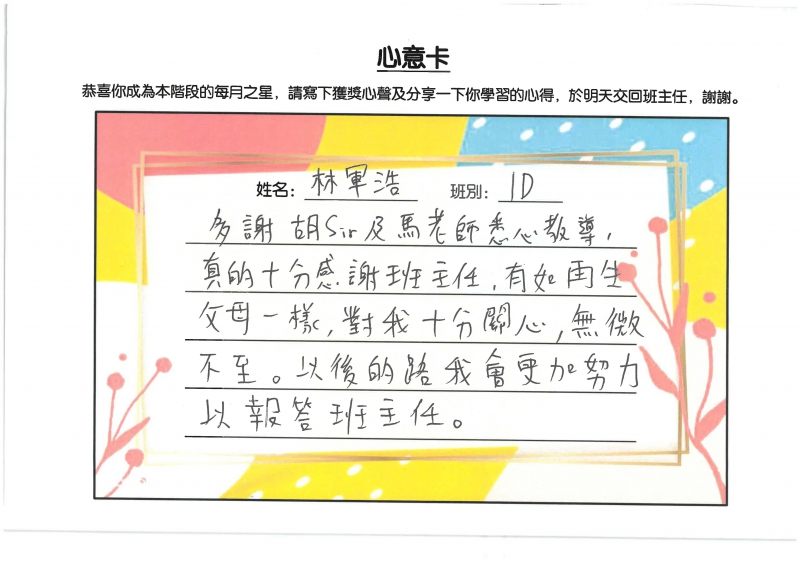 心意卡
恭喜你成為本階段的每月之星，請寫下獲獎心聲及分享一下你學習的心得，於明天交回班主任，謝謝。
姓名：林軍浩 班別：1D
多謝胡Sir及馬老師悉心教導，
真的十分感謝班主任，有如再生
父母一樣，對我十分關心，無微
不至。以後的路我會更加努力
以報答班主任。